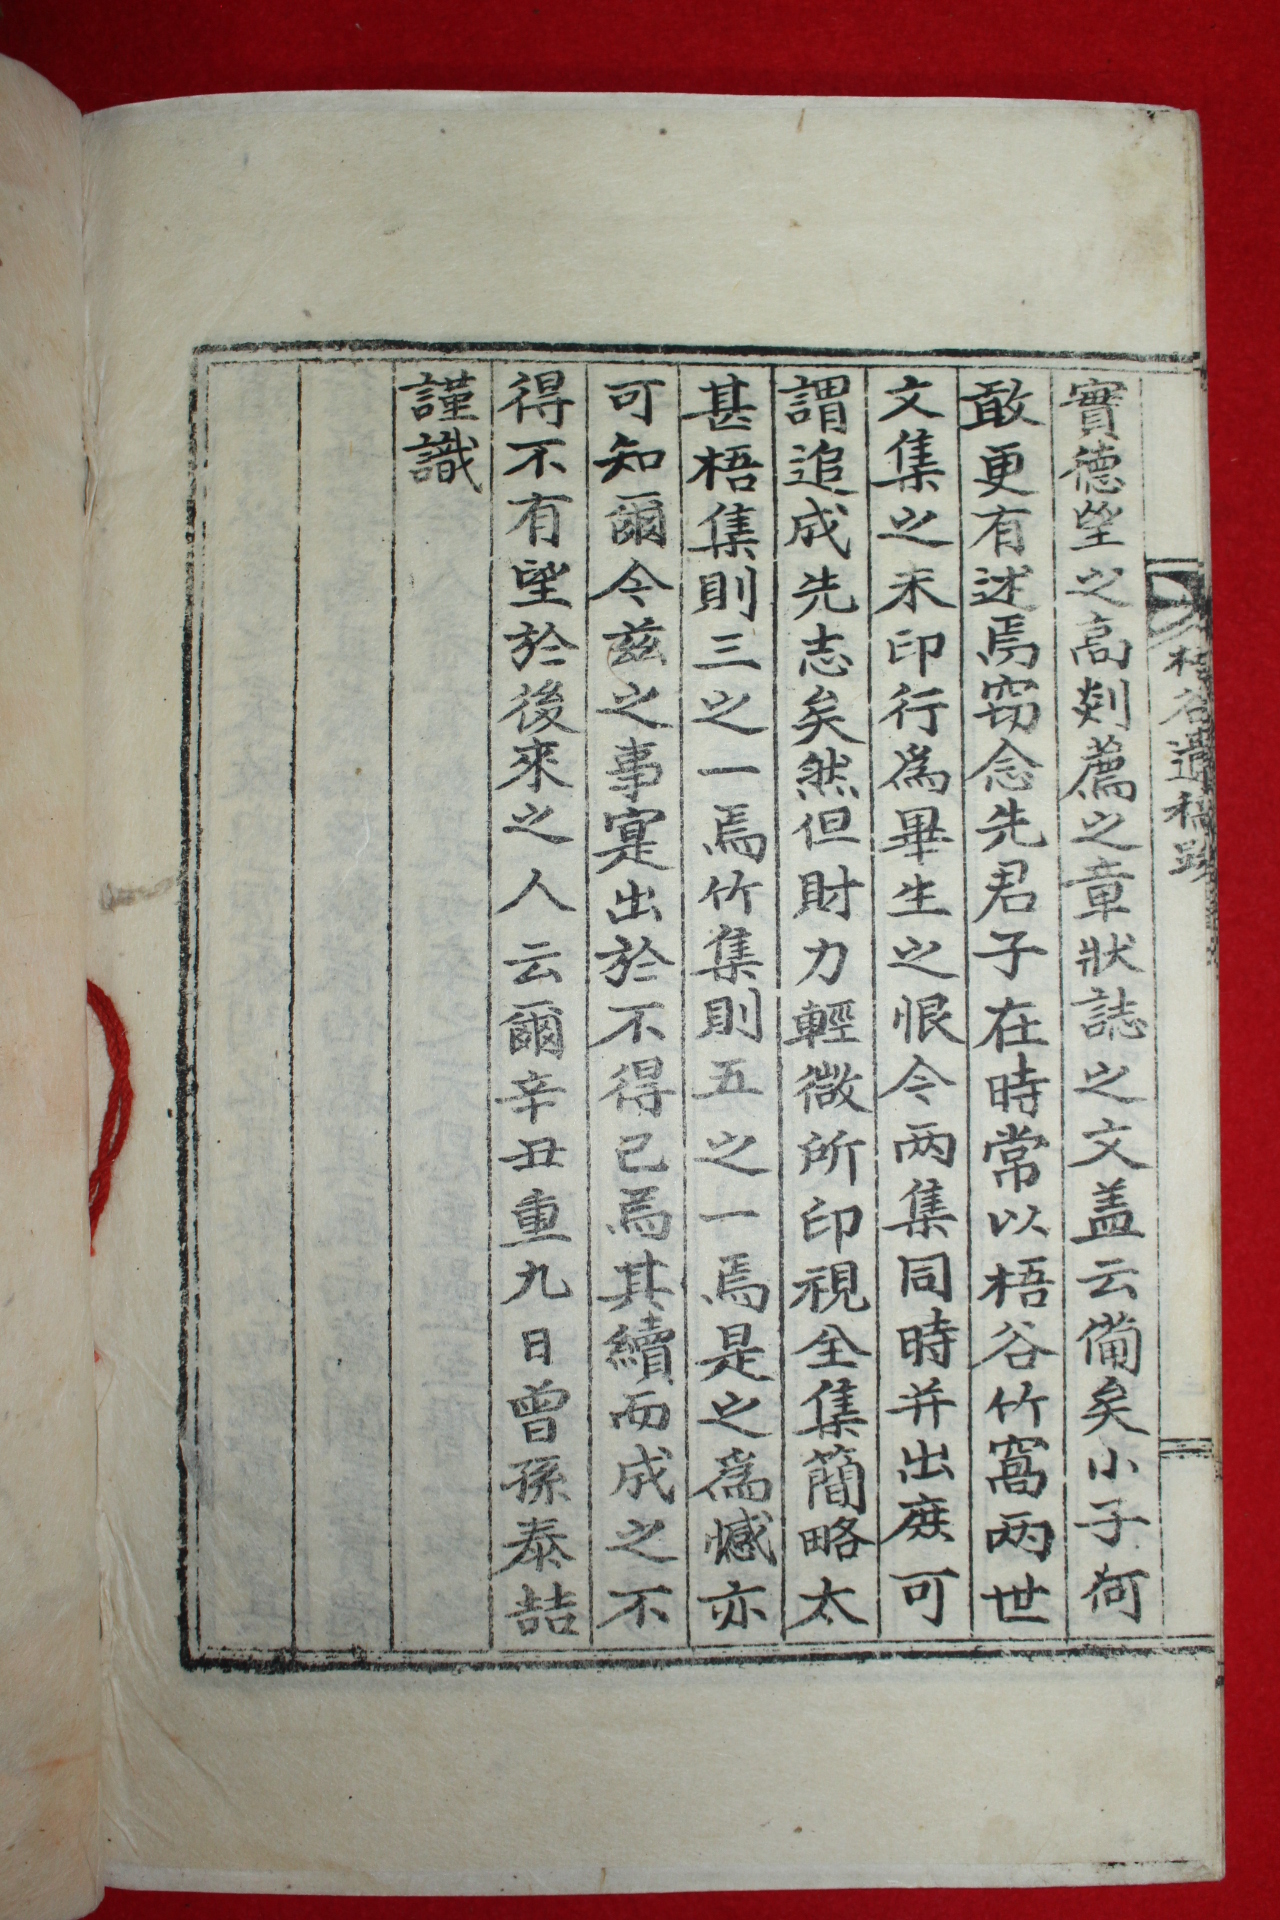 實德望之高剡薦之章狀誌之文盖云備矣小子何
敢更有述焉窃念先君子在時常以梧谷竹窩两世
文集之未印行爲畢生之恨今两集同時并出庶可
謂追成先志矣然但財力輕微所印視全集簡略太
甚梧集則三之一焉竹集則五之一焉是之爲憾亦
可知爾今兹之事寔出於不得已焉其續而成之不
得不有望於後來之人云爾辛丑重九日曾孫泰喆
謹識
梧谷遺稿跋